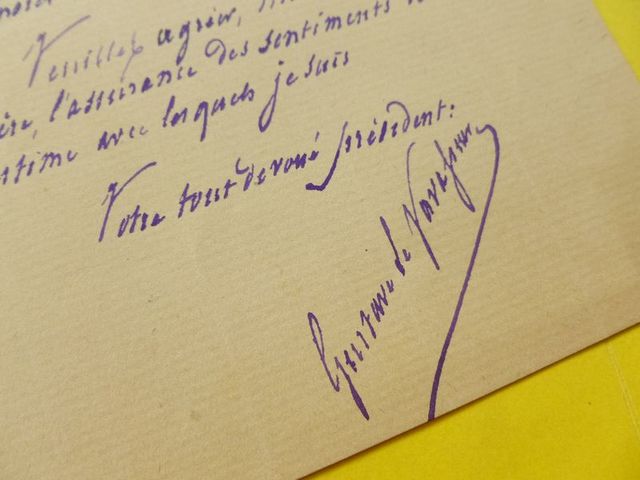 Veuillez agréer,
l'assurance des sentiments
avec lesquels je suis
Votre tout devoué président:
Gustave de